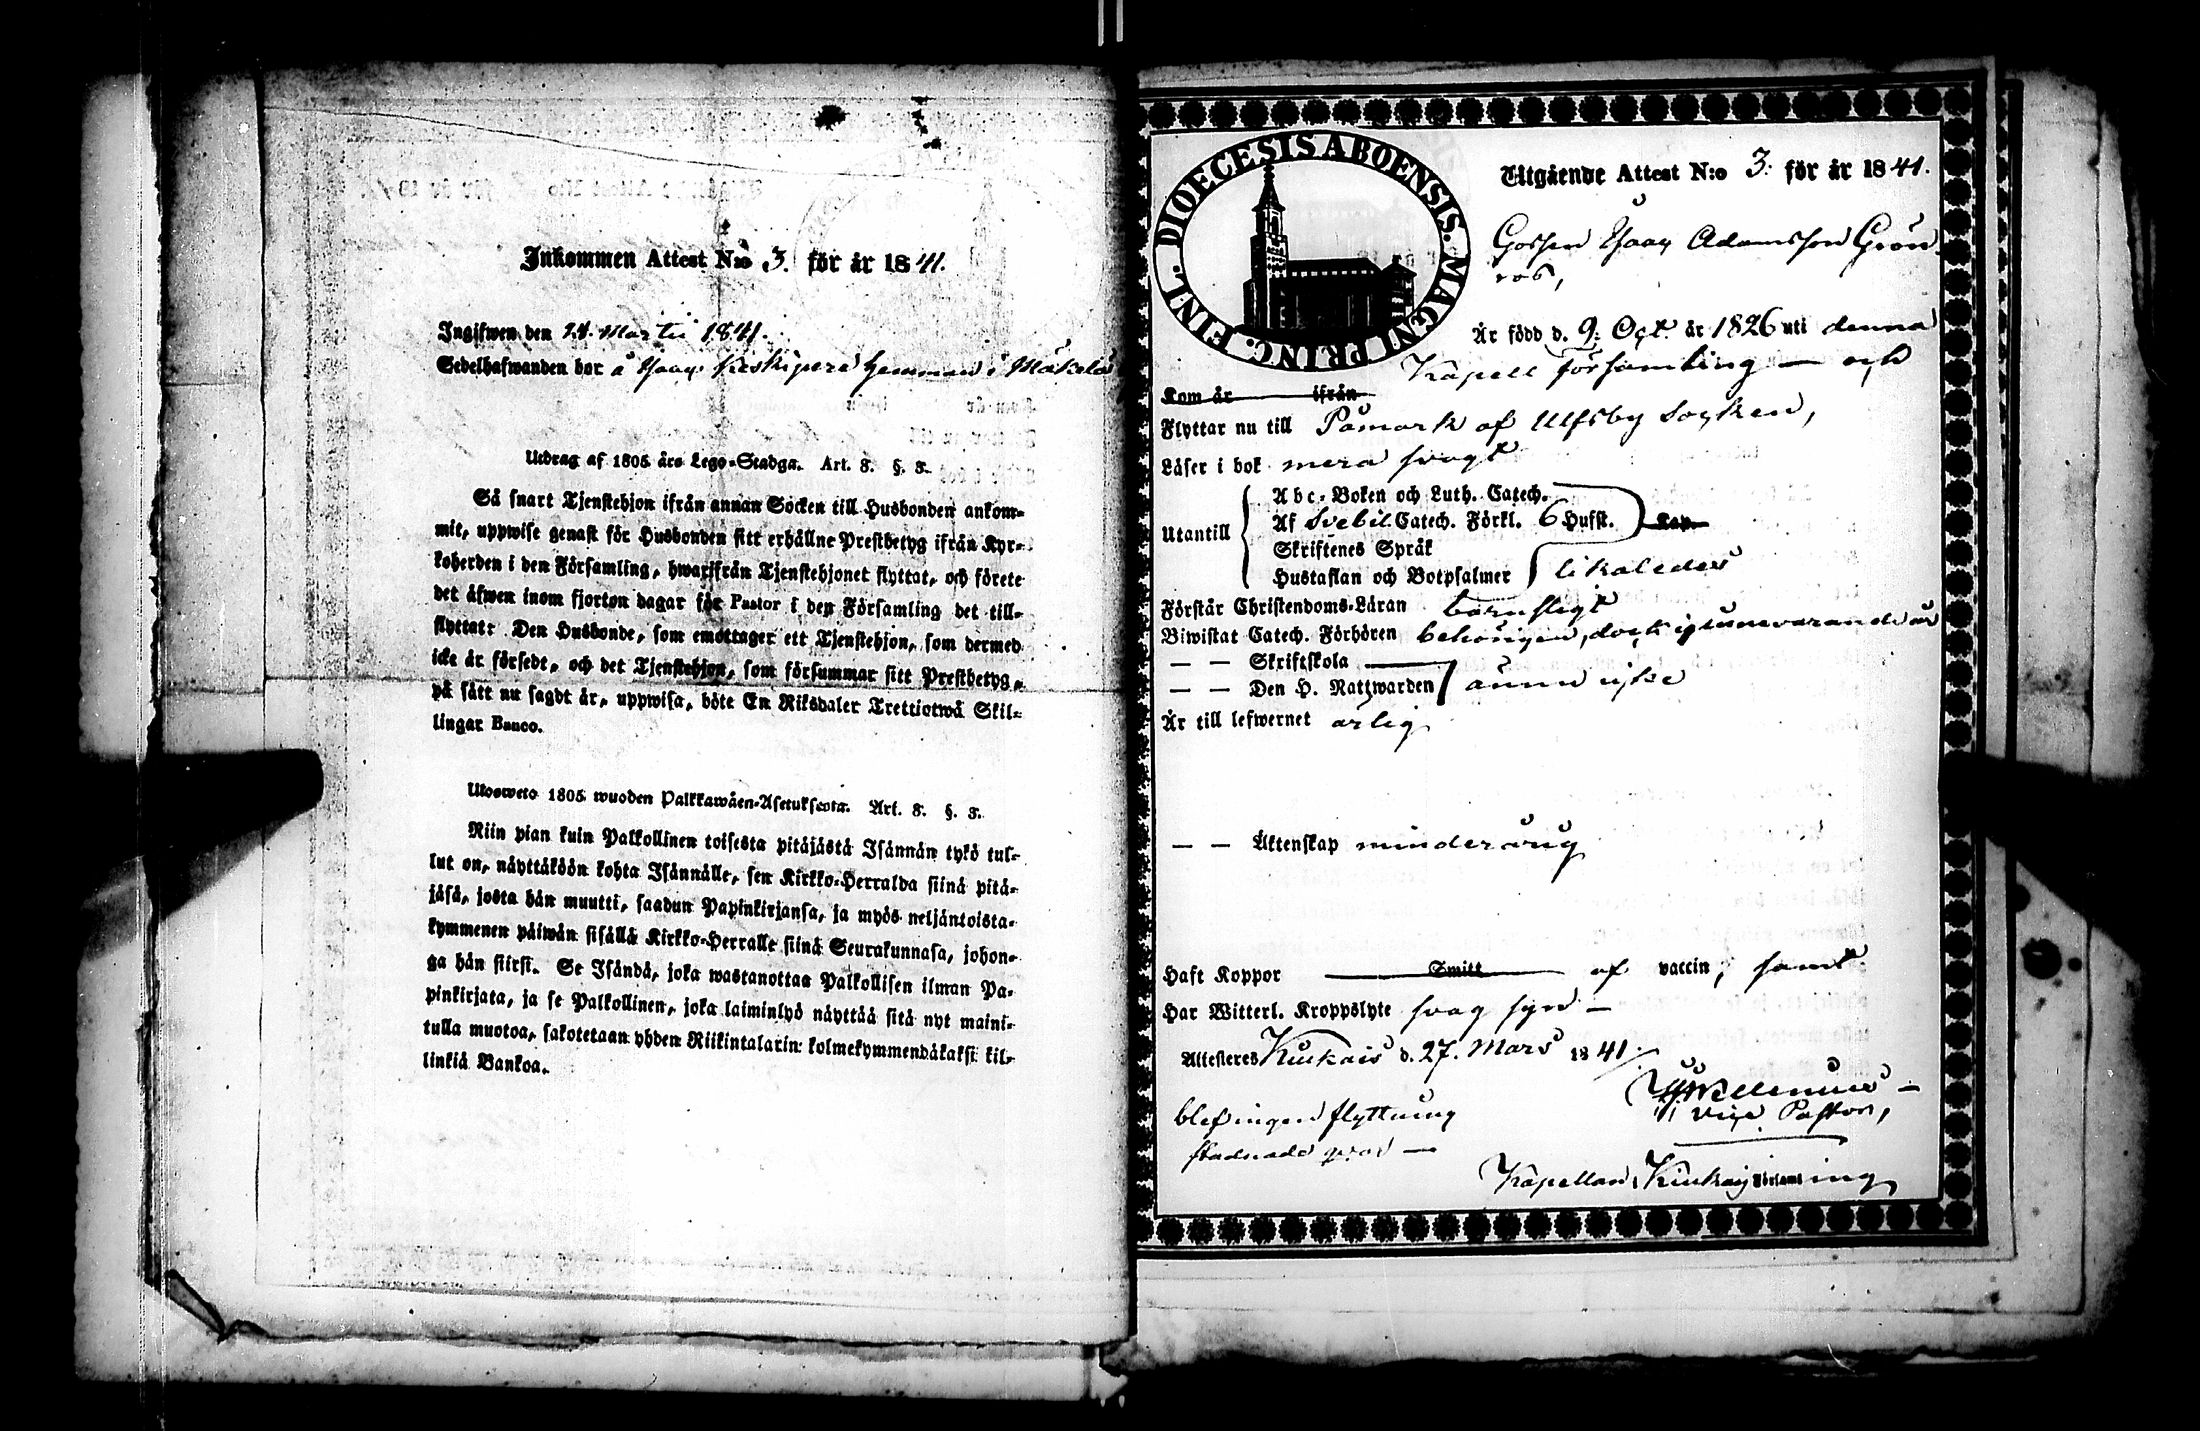 Inkommen Attest N:o 3. för år 1841.
Ingifwen den 14. Martii 1841.
Sedelhafwanden bor å Isaac Keskipere hemman i Mäkelä
Utdrag af 1805 års Lego-Stadga. Art. 8. §. 3.
Så snart Tjenstehjon ifrån annan Socken till Husbonden ankom-
mit, uppwise genast för Husbonden sitt erhållne Prestbetyg ifrån Kyr-
koherden i den Församling, hwarifrån Tjenstehjonet flyttat, och förete
det äfwen inom fjorton dagar för Pastor i den Församling det till-
flyttat: Den Husbonde, som emottager ett Tjenstehjon, som dermed
icke är försedt, och det Tjenstehjon, som försummar sitt Prestbetyg,
på sätt nu sagdt är, uppwisa, böte En Riksdaler Trettiotwå Skil-
lingar Banco.
Ulosweto 1805 wuoden Palkkawäen-Asetuksesta. Art. 8. §. 3.
Niin pian kuin Palkollinen toisesta pitäjästä Isännän tykö tul-
lut on, näyttäköön kohta Isännälle, sen Kirkko-Herralda siinä pitä-
jäsä, josta hän muutti, saadun Papinkirjansa, ja myös neljäntoista-
kymmenen päiwän sisällä Kirkko-Herralle siinä Seurakunnasa, johon-
ga hän siirsi. Se Isändä, joka wastanottaa Palkollisen ilman Pa-
pinkirjata, ja se Palkollinen, joka laiminlyö näyttää sitä nyt maini-
tulla muotoa, sakotetaan yhden Riikintalarin kolmekymmendäkaksi kil-
linkiä Bankoa.
DIOECESIS ABOENSIS. MAGNI PRINC. FINL.
Utgående Attest N:o 3. för år 1841.
Gossen Isaac Adamsson Grön
ros,
Är född d. 9. Oct. år 1826 uti denna
Kapell församling — och
Kom år ifrån
Flyttar nu till Påmark af Ulfsby Socken,
Läser i bok mera svagt
Utantill
Abc-Boken och Luth. Catech.
Af Svebil. Catech. Förkl. 6 Hufst. Kap.
Skriftenes Språk
Hustaflan och Botpsalmer likaledes
Förstår Christendoms-Läran barnsligt
Biwistat Catech. Förhören behörigen, dock
— — Skriftskola
— — Den H. Nattwarden ännu icke
Är till lefwernet ärlig
— — Äktenskap minderårig
Haft Koppor Smitt af vaccin, samt
Har Witterl. Kroppslyte svag syn —
Attesteres Kiukais d. 27. Mars 1841.
Wellenius —
Vice Pastor,
blef ingen flyttning
Kapellan i Kiukais Församling